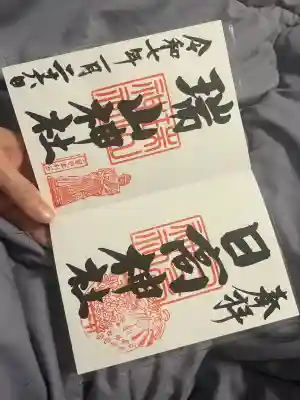 奉拝
日高神社
瑞山神社
令和七年一月二十六日